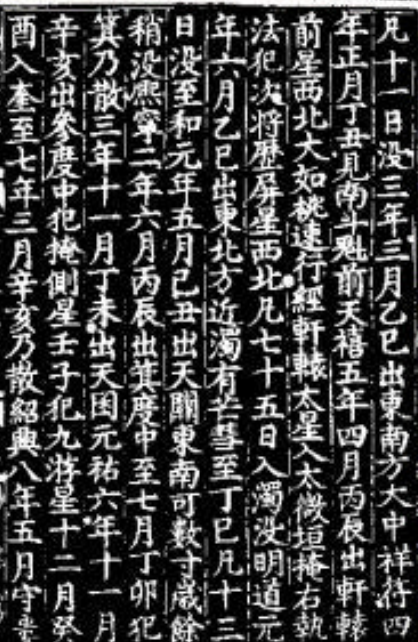 凡十一日没三年三月乙巳出東南方大中祥符四
年正月丁丑見南斗魁前天禧五年四月丙辰出軒轅
前星西北大如桃速行經軒轅太星入太微垣掩右執
法犯次將歷屏星西北凡七十五日入濁没明道元
年六月乙巳出東北方近濁有芒彗至丁巳凡十三
日没至和元年五月己丑出天關東南可數寸歲餘
稍没熙寧二年六月丙辰出箕度中至七月丁卯犯
箕乃散三年十一月丁未出天囷元祐六年十一月
辛亥出參度中犯掩側星壬子犯九斿星十二月癸
酉入奎至七年三月辛亥乃散紹興八年五月守婁